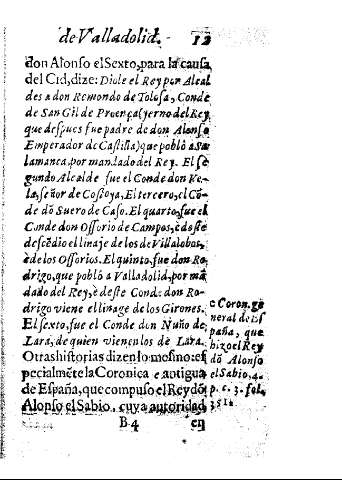 de Valladolid. 12
don Alonso el Sexto, para la causa
del Cid, dize: Diole el Rey por Alcal
des a don Remondo de Tolosa, Conde
de San Gil de Proença (yerno del Rey
que despues fue padre de don Alonso
Emperador de Castilla) que poblò a Sa
lamanca, por mandado del Rey. El se
gundo Alcalde fue el Conde don Ve-
la, señor de Costoya, El tercero, el Cõ-
de dõ Suero de Caso. El quarto, fue el
Conde don Ossorio de Campos, è deste
descẽdio el linaje de los de Villalobos,
è de los Ossorios. El quinto, fue don Ro-
drigo, que poblò a Valladolid, por mã
dado del Rey, è deste Conde don Ro-
drigo viene el linage de los Girones.
El sexto, fue el Conde don Nuño de
Lara, de quien vienen los de Lara.
Otras historias dizen lo mesmo: es
pecialmẽte la Coronica e antigua
de España, que compuso el Rey dõ
Alonso el Sabio, cuya autoridad
B 4 en
e Coron. ge
neral de Es
paña, que
hizo el Rey
dõ Alonso
el Sabio, 4.
p. c. 3. fol.